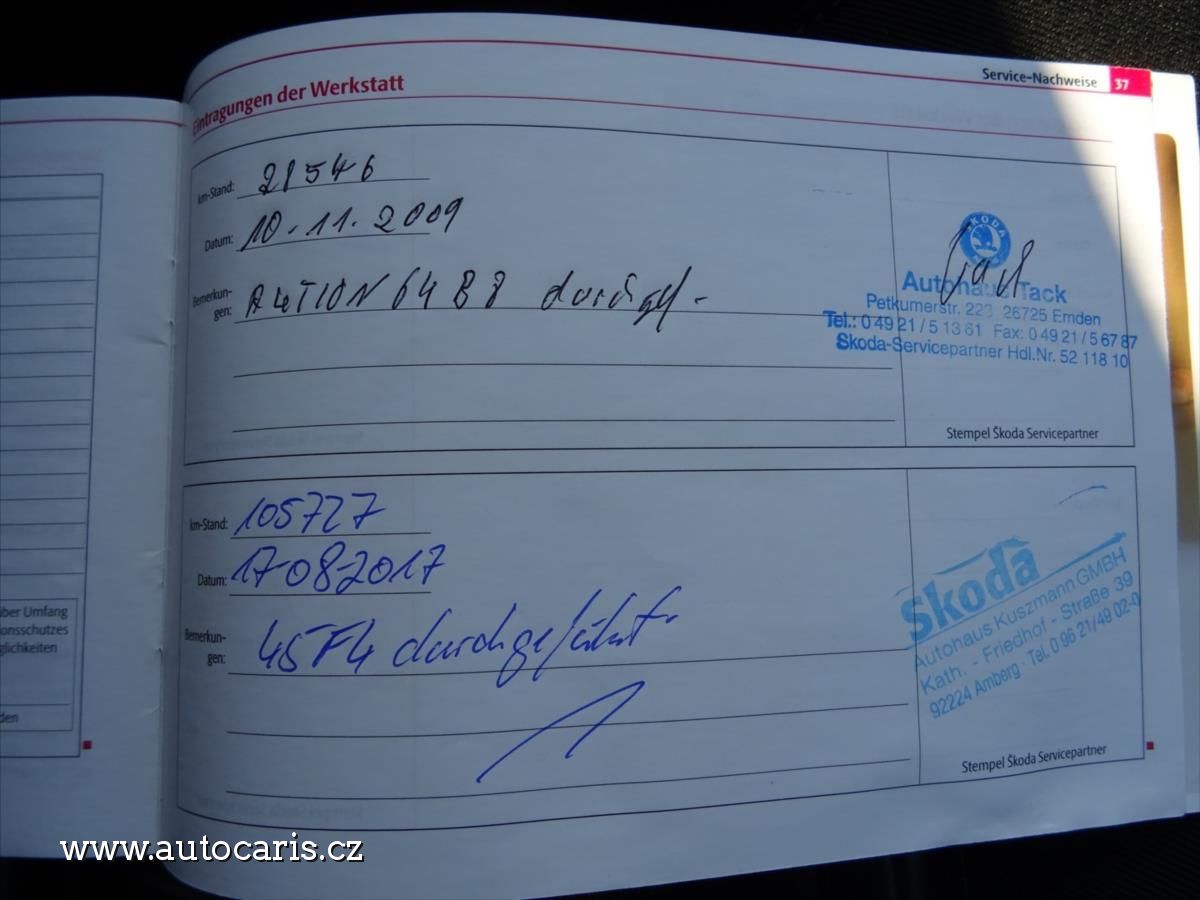 Service-Nachweise 37
Eintragungen der Werkstatt
km-Stand: 21546
Datum: 10.11.2009
Bemerkun-
gen: AKTION 64B8
SKODA
Autohaus Tack
Petkumerstr. 223 26725 Emden
Tel.: 0 49 21 / 5 13 61 Fax: 0 49 21 / 5 67 87
Skoda-Servicepartner Hdl.Nr. 52 118 10
Stempel Škoda Servicepartner
km-Stand: 105727
Datum: 17-08-2017
Bemerkun-
gen: 45F4 durchgeführt
Škoda
Autohaus Kuszmann GMBH
Kath. - Friedhof - Straße 39
92224 Amberg · Tel. 0 96 21/49 02-0
Stempel Škoda Servicepartner
über Umfang
onsschutzes
glichkeiten
den
www.autocaris.cz